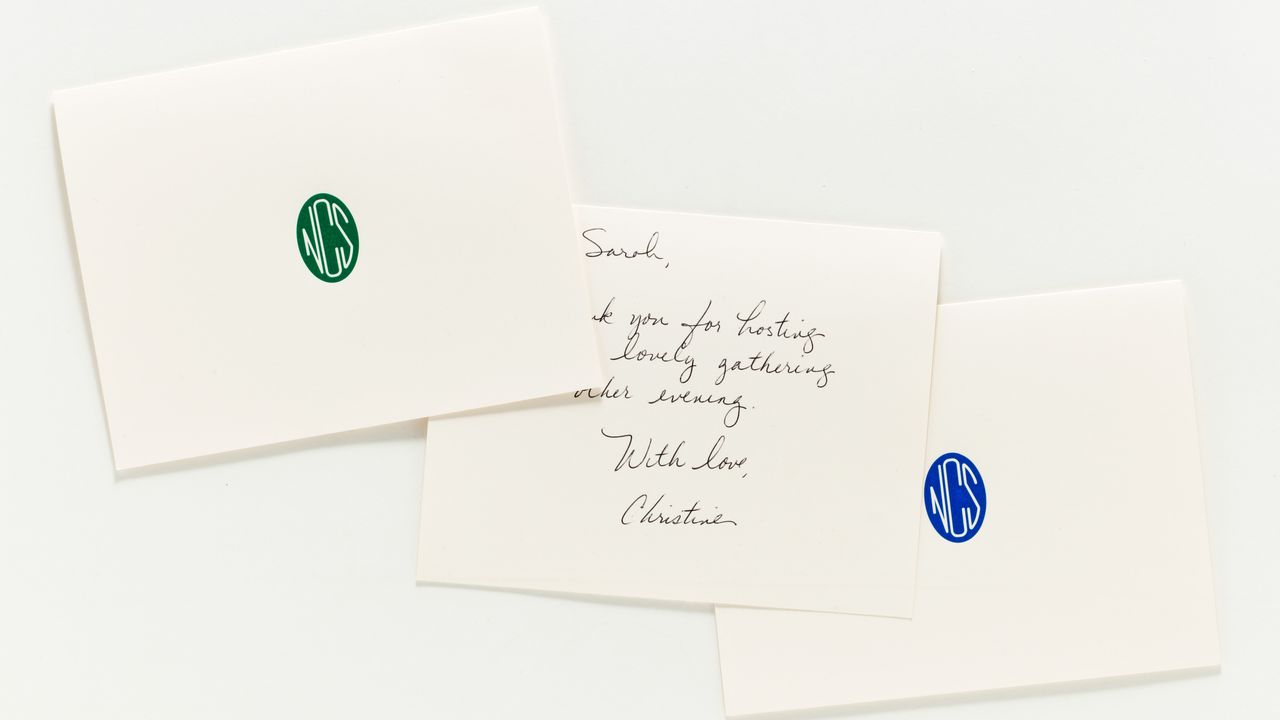 NCS
Sarah,
nk you for hosting
lovely gathering
other evening.
With love,
Christine
NCS